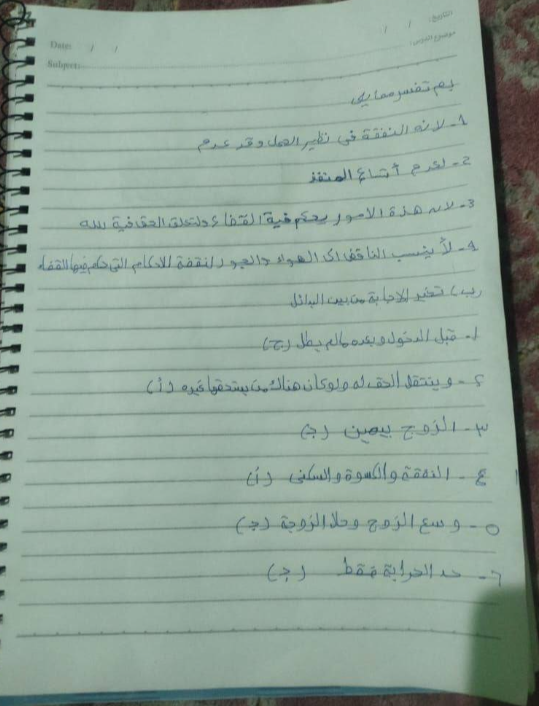 التاريخ: / /
Date: / /
موضوع الدرس:
Subject:
بم تفسر مما يلى
1- لانه النفقة فى نظير العمل وقد عدم
2- لعدم أتباع المنفذ
3- لان هذة الامور يحكم فية القضاء ولتعلق الحق فية الله
4- لأ ينسب الناقض الى الهواد والجور لنقضة الاحكام التى حكم فيها القضاه
(ب) تخير الاجابة من بين البدائل
1- قبل الدخول وبعده مالم يطل (ج)
2- وينتقل الحق له ولو كان هناك من يستحقها غيره (أ)
3- الزوج بيمين (ج)
ع - النفقة والكسوة والسكنى (أ)
٥- وسع الزوج وحال الزوجة (ج)
٦- حد الحرابة فقط (ج)